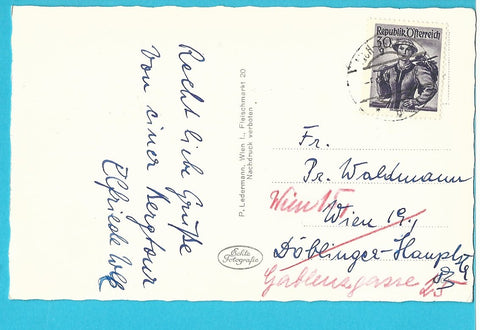 Recht liebe Grüße
von einer Bergtour
Elfriede Wolf
P. Ledermann, Wien I., Fleischmarkt 20
Nachdruck verboten
Echte
Fotografie
Republik Österreich
30
Fr.
Pr. Waldmann
Wien 15
Wien 19,
Döblinger-Hauptstr
Gablenzgasse 25